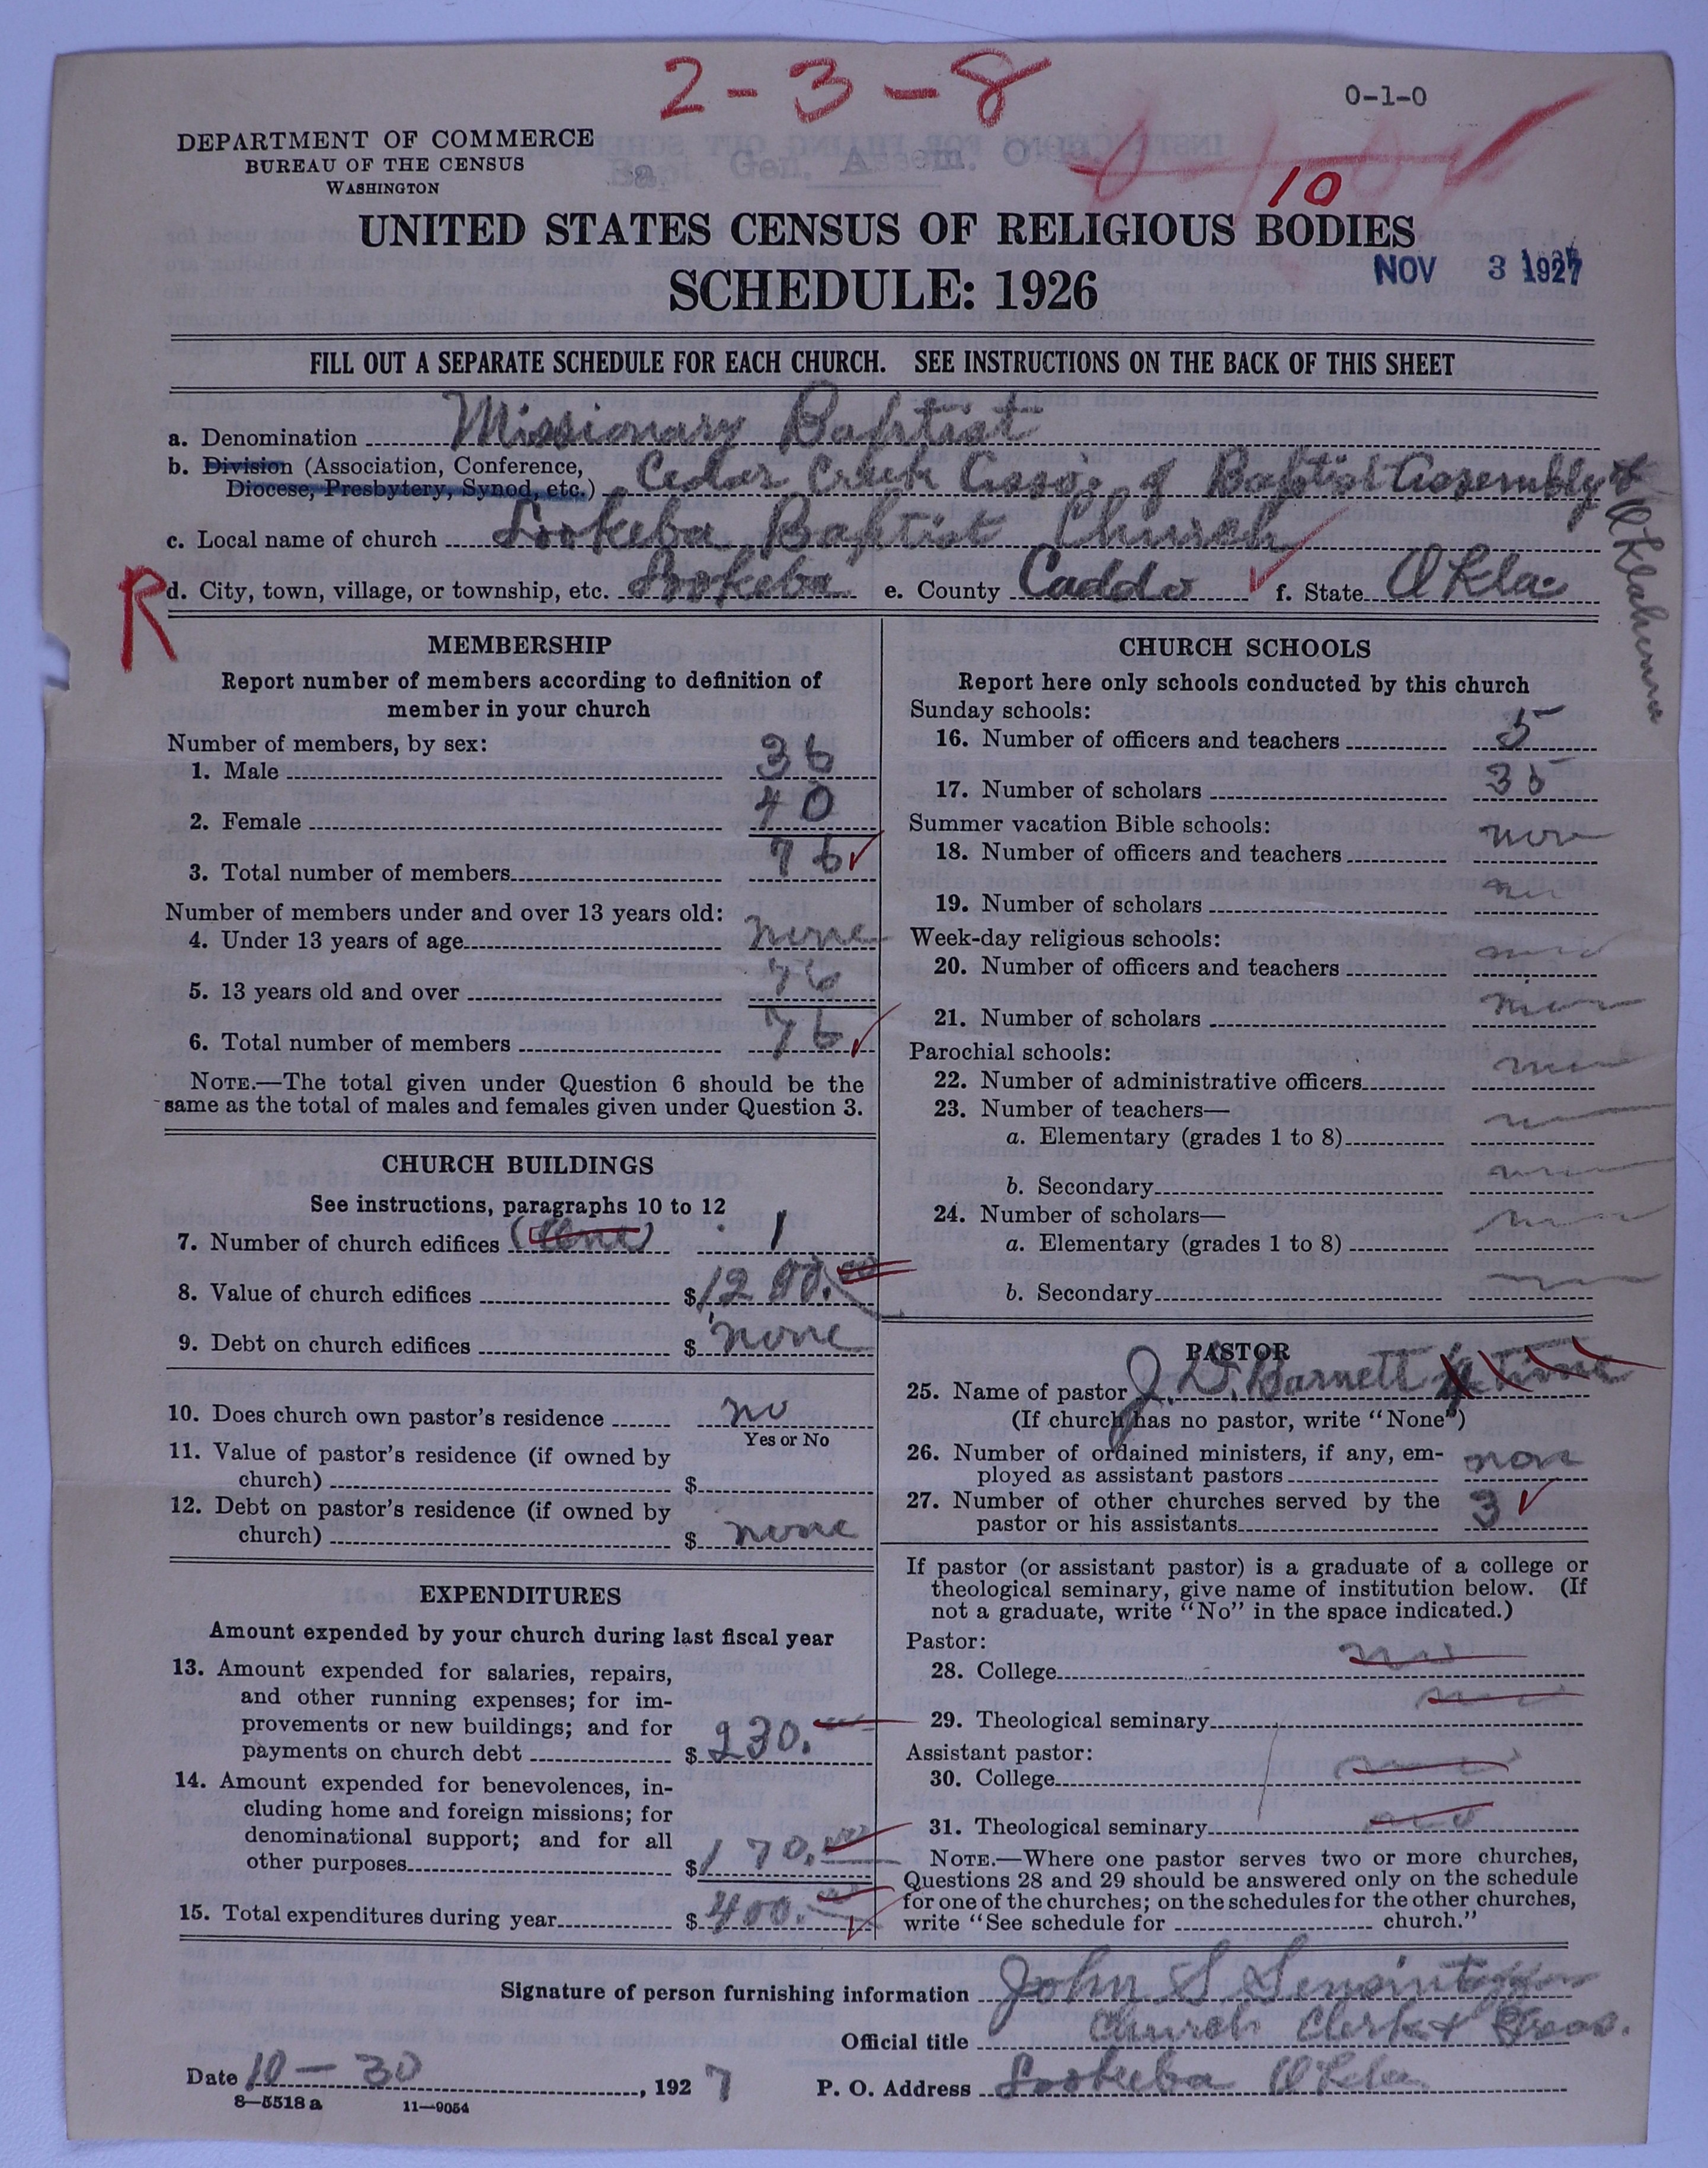 2-3-8
0-1-0
DEPARTMENT OF COMMERCE
BUREAU OF THE CENSUS
WASHINGTON
Bapt. Gen. Assem. Okla.
0-1-0
10
UNITED STATES CENSUS OF RELIGIOUS BODIES
SCHEDULE: 1926
NOV 3 1927
FILL OUT A SEPARATE SCHEDULE FOR EACH CHURCH. SEE INSTRUCTIONS ON THE BACK OF THIS SHEET
a. Denomination Missionary Baptist
b. Division (Association, Conference, Diocese, Presbytery, Synod, etc.) Cedar Creek Asso. of Baptist Assembly of Oklahoma
c. Local name of church Lookeba Baptist Church
R d. City, town, village, or township, etc. Lookeba e. County Caddo f. State Okla.
MEMBERSHIP
Report number of members according to definition of
member in your church
Number of members, by sex:
1. Male 36
2. Female 40
3. Total number of members 76
Number of members under and over 13 years old:
4. Under 13 years of age none
5. 13 years old and over 76
6. Total number of members 76
NOTE.—The total given under Question 6 should be the
same as the total of males and females given under Question 3.
CHURCH BUILDINGS
See instructions, paragraphs 10 to 12
7. Number of church edifices (One) 1
8. Value of church edifices $1200.00
9. Debt on church edifices $ none
10. Does church own pastor's residence no
Yes or No
11. Value of pastor's residence (if owned by
church) $
12. Debt on pastor's residence (if owned by
church) $ none
EXPENDITURES
Amount expended by your church during last fiscal year
13. Amount expended for salaries, repairs,
and other running expenses; for im-
provements or new buildings; and for
payments on church debt $ 230.
14. Amount expended for benevolences, in-
cluding home and foreign missions; for
denominational support; and for all
other purposes $ 170.00
15. Total expenditures during year $ 400.00
CHURCH SCHOOLS
Report here only schools conducted by this church
Sunday schools:
16. Number of officers and teachers 5
17. Number of scholars 35
Summer vacation Bible schools:
18. Number of officers and teachers non
19. Number of scholars
Week-day religious schools:
20. Number of officers and teachers
21. Number of scholars
Parochial schools:
22. Number of administrative officers
23. Number of teachers—
a. Elementary (grades 1 to 8)
b. Secondary
24. Number of scholars—
a. Elementary (grades 1 to 8)
b. Secondary
PASTOR
25. Name of pastor J. D. Barnett time
(If church has no pastor, write "None")
26. Number of ordained ministers, if any, em-
ployed as assistant pastors non
27. Number of other churches served by the
pastor or his assistants 3
If pastor (or assistant pastor) is a graduate of a college or
theological seminary, give name of institution below. (If
not a graduate, write "No" in the space indicated.)
Pastor:
28. College
29. Theological seminary
Assistant pastor:
30. College
31. Theological seminary
NOTE.—Where one pastor serves two or more churches,
Questions 28 and 29 should be answered only on the schedule
for one of the churches; on the schedules for the other churches,
write "See schedule for church."
Signature of person furnishing information John S
Official title Church Clerk & Treas.
Date 10-30, 1927 P. O. Address Lookeba Okla
8—5518 a 11—9054